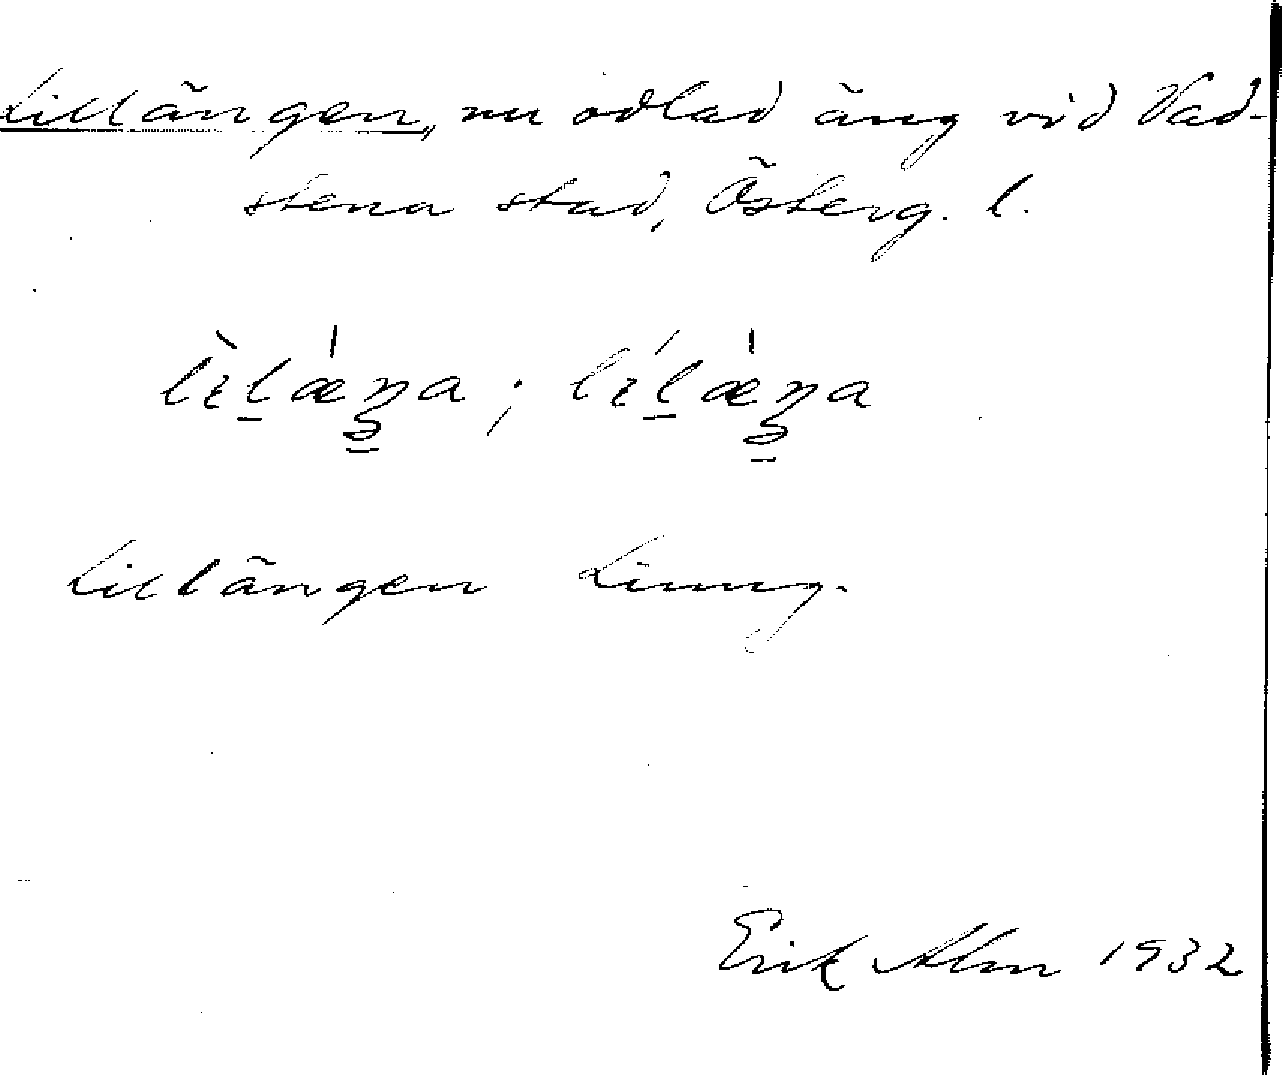 Lillängen, nu odlad äng vid Vad-
stena stad, Österg. l.
Lillängen Linng.
Erik Alm 1932